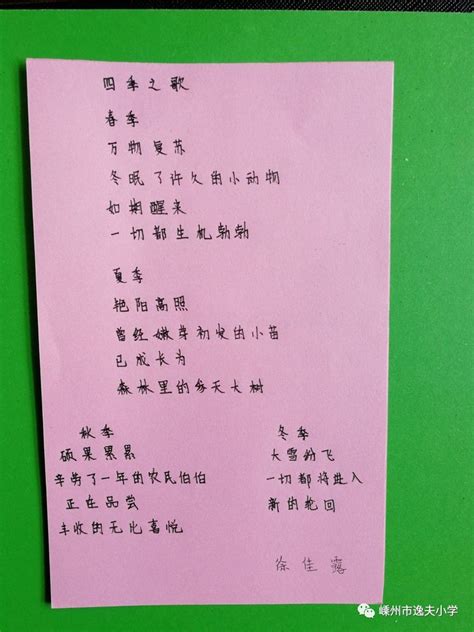 四季之歌
春季
万物复苏
冬眠了许久的小动物
如期醒来
一切都生机勃勃
夏季
艳阳高照
曾经嫩芽初发的小苗
已成长为
森林里的参天大树
秋季
硕果累累
辛劳了一年的农民伯伯
正在品尝
丰收的无比喜悦
冬季
大雪纷飞
一切都将进入
新的轮回
徐佳露
嵊州市逸夫小学